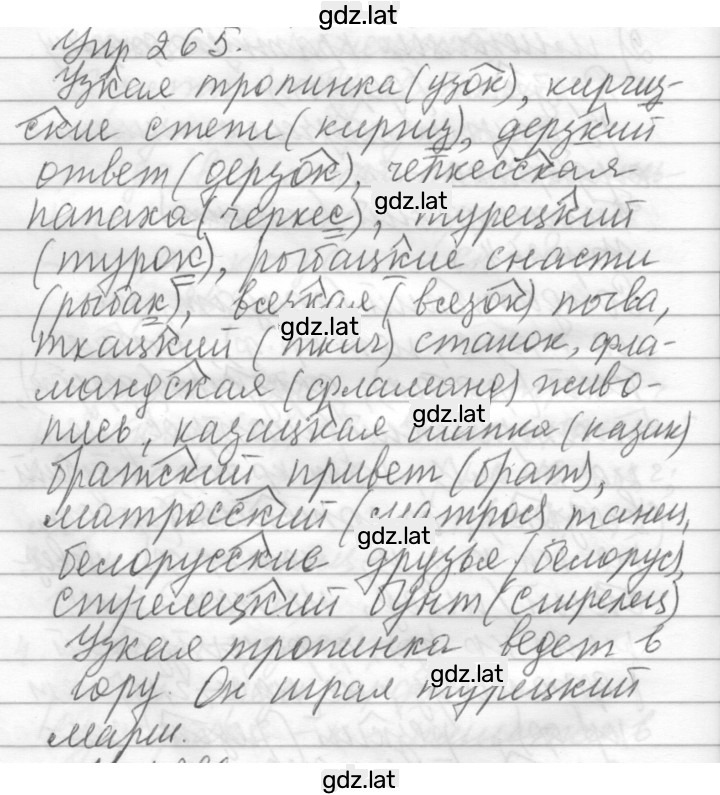 gdz.lat
Упр 265.
Узкая тропинка (узок), киргиз-
ские степи (киргиз), дерзкий
ответ (дерзок), черкесская
gdz.lat
папаха (черкес), турецкий
(турок), рыбацкие снасти
(рыбак), вязкая (вязок) почва,
gdz.lat
ткацкий (ткач) станок, фла-
мандская (фламанд) живо-
gdz.lat
пись, казацкая шапка (казак)
братский привет (брат),
матросский (матрос) танец,
gdz.lat
белорусские друзья (белорус)
стрелецкий бунт (стрелец)
Узкая тропинка ведет в
gdz.lat
гору. Он играл турецкий
марш.
gdz.lat